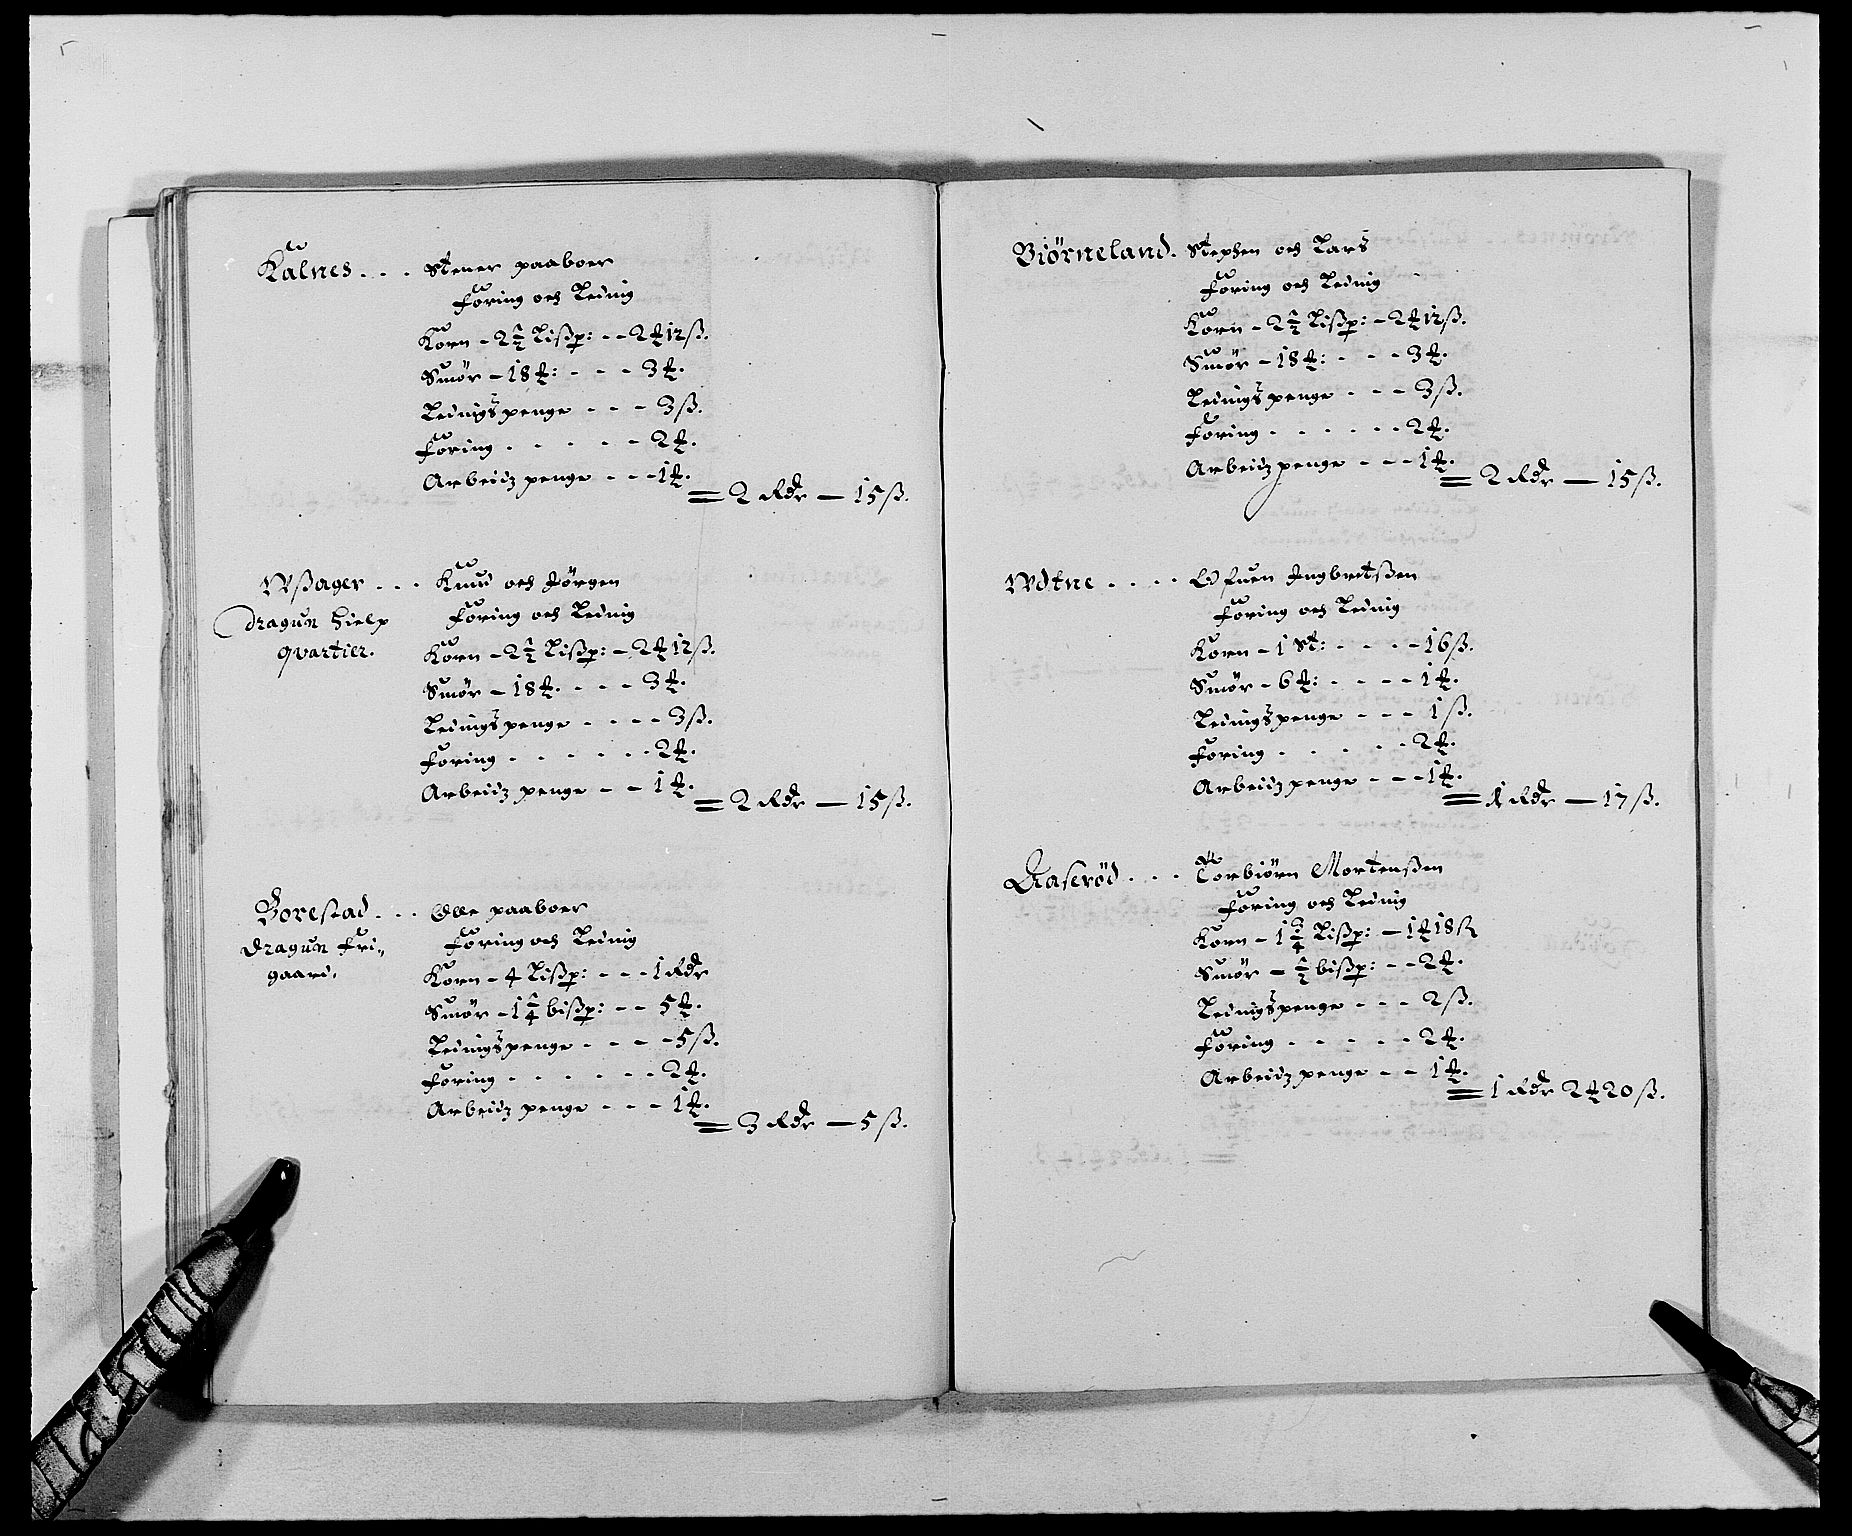 Kalnes . . . Stener paaboer
Foring och Leding
Korn - 2½ Lißp: - - 2 ₰ 12 ß.
Smør - 18 ₰: - - - 3 ₰.
Ledingspenge - - - 3 ß.
Foring . . . . . - 2 ₰.
Arbeidz penge - - - 1 ₰.
= 2 Rdr — 15 ß.
Wßager . . . Knud och Jørgen
Dragun hielp Foring och Leding
qvarteer. Korn - 2½ Lißp: - 2 ₰ 12 ß.
Smør - 18 ₰. - - - 3 ₰.
Ledingspenge - - - - 3 ß.
Foring . . . . . . 2 ₰.
Arbeidz penge - - 1 ₰.
= 2 Rdr — 15 ß.
Borestad . . . Olle paaboer
Dragun Fri= Foring och Leding
gaard. Korn - 4 Lißp: - - - 1 Rdr
Smør - 1¼ bißp: - - 5 ₰.
Ledingspenge - - - - 5 ß.
Foring . . . . . - 2 ₰.
Arbeidz penge - - - 1 ₰.
= 3 Rdr — 5 ß.
Biørneland. Stephen och Lars
Foring och Leding
Korn - 2½ Lißp: - 2 ₰ 12 ß.
Smør - 18 ₰: - - - 3 ₰.
Ledingspenge - - - 3 ß.
Foring . . . . . - 2 ₰.
Arbeidz penge - - - 1 ₰.
= 2 Rdr — 15 ß.
Wdtne . . . . Ofuen Ingbretßen
Foring och Leding
Korn - 1 St: - - - - 16 ß.
Smør - 6 ₰: - - - - 1 ₰.
Ledingspenge - - - 1 ß.
Foring . . . . . - 2 ₰.
Arbeidz penge - - - 1 ₰.
= 1 Rdr — 17 ß.
Aaserød . . . Torbiørn Mortenßen
Foring och Leding
Korn - 1¾ Lißp: - 1 ₰ 18 ß
Smør - ½ bißp: - - 2 ₰.
Ledingspenge - - - 2 ß.
Foring . . . . . - 2 ₰.
Arbeidz penge - - 1 ₰.
= 1 Rdr 2 ₰ 20 ß.